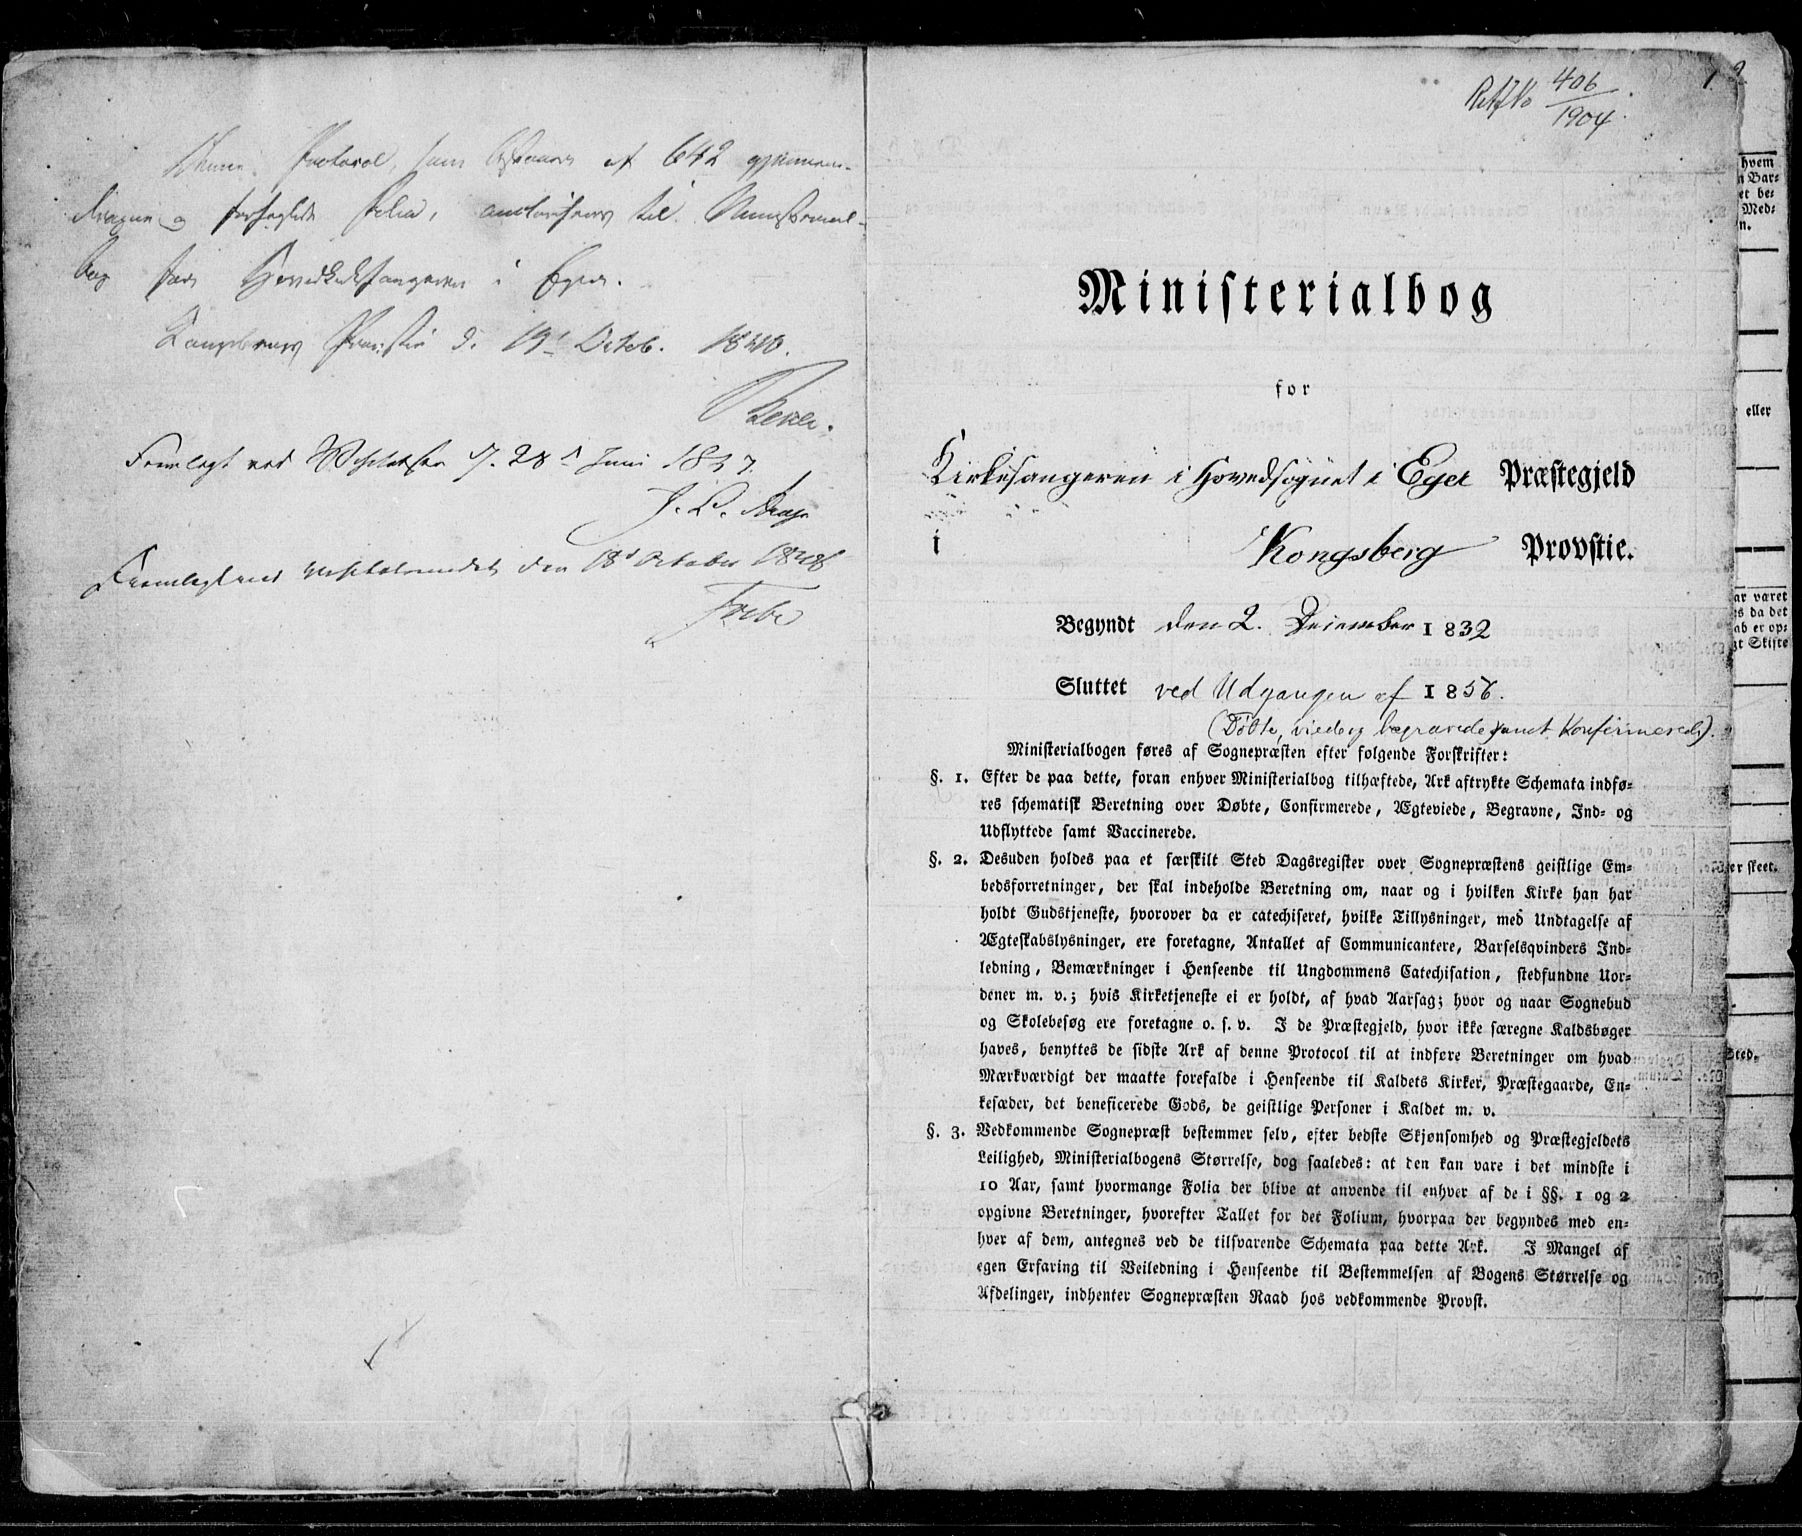 Denne Protocol, som bestaaer af 642 gjennem-
dragne og forseglede Folia, autoriseres til Ministerial-
bog for Hovedkirkesangeren i Eger.
Kongsbergs Provstie d. 19d Octob.
Fremlagt ved Visitatsen d. 28d Juni
Fremlagt ved Visitatsmødet den 18d October
406
1904
1
Ministerialbog
for
Kirkesangeren i Hovedsognet i Eger Præstegjeld
i Kongsberg Provstie.
Begyndt den 2. December 1832
Sluttet ved Udgangen af 1856.
(Døbte, viede og begravede samt Konfirmerede).
Ministerialbogen føres af Sognepræsten efter følgende Forskrifter:
§. 1. Efter de paa dette, foran enhver Ministerialbog tilhæftede, Ark aftrykte Schemata indfø-
res schematisk Beretning over Døbte, Confirmerede, Ægteviede, Begravne, Ind- og
Udflyttede samt Vaccinerede.
§. 2. Desuden holdes paa et særskilt Sted Dagsregister over Sognepræstens geistlige Em-
bedsforretninger, der skal indeholde Beretning om, naar og i hvilken Kirke han har
holdt Gudstjeneste, hvorover da er catechiseret, hvilke Tillysninger, med Undtagelse af
Ægteskabslysninger, ere foretagne, Antallet af Communicantere, Barselqvinders Ind-
ledning, Bemærkninger i Henseende til Ungdommens Catechisation, stedfundne Uor-
dener m. v.; hvis Kirketjeneste ei er holdt, af hvad Aarsag; hvor og naar Sognebud
og Skolebesøg ere foretagne o. s. v. I de Præstegjeld, hvor ikke særegne Kaldsbøger
haves, benyttes de sidste Ark af denne Protocol til at indføre Beretninger om hvad
Mærkværdigt der maatte forefalde i Henseende til Kaldets Kirker, Præstegaarde, En-
kesæder, det beneficerede Gods, de geistlige Personer i Kaldet m. v.
§. 3. Vedkommende Sognepræst bestemmer selv, efter bedste Skjønsomhed og Præstegjeldets
Leilighed, Ministerialbogens Størrelse, dog saaledes: at den kan vare i det mindste i
10 Aar, samt hvormange Folia der blive at anvende til enhver af de i §§. 1 og 2
opgivne Beretninger, hvorefter Tallet for det Folium, hvorpaa der begyndes med en-
hver af dem, antegnes ved de tilsvarende Schemata paa dette Ark. I Mangel af
egen Erfaring til Veiledning i Henseende til Bestemmelsen af Bogens Størrelse og
Afdelinger, indhenter Sognepræsten Raad hos vedkommende Provst.
2
hvem
n Bar-
et be-
Med-
n.
eller
ar været
es da det
ab er op-
gt Skifte
er skeet.
Sted.